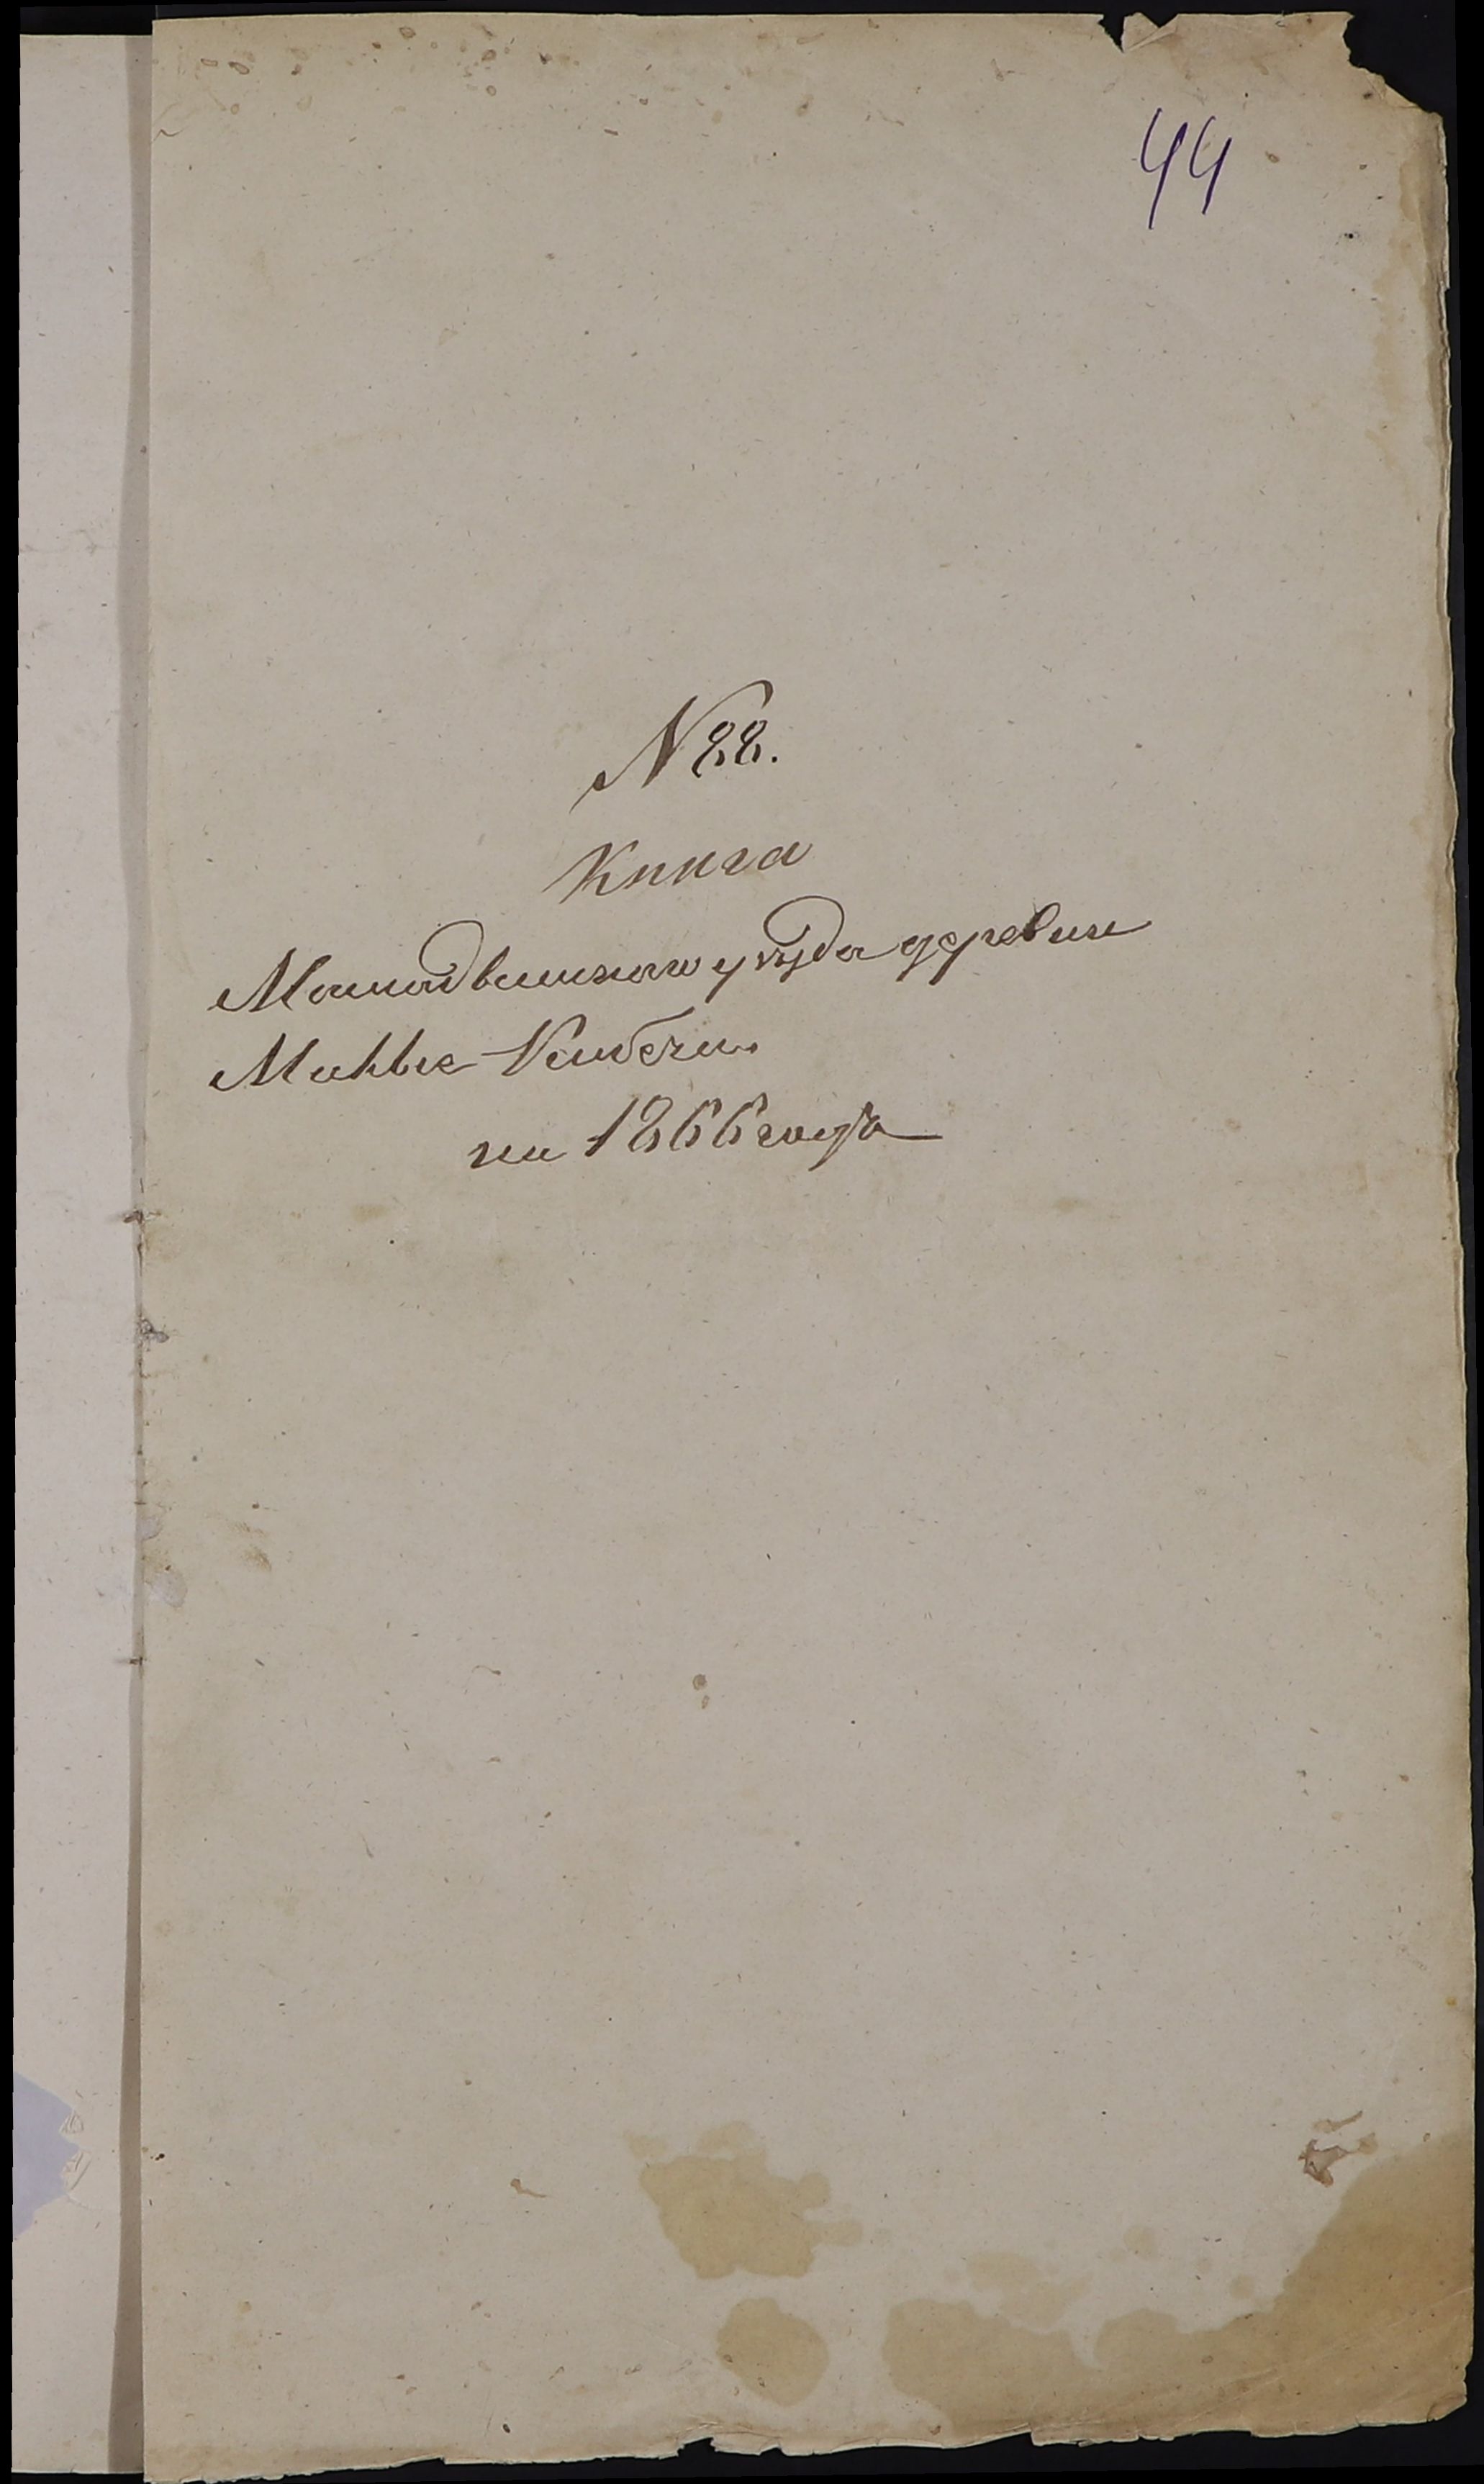 44
N 88.
Книга
Мамадышскаго уѣзда деревни
Малые Кибечи
на 1866 года